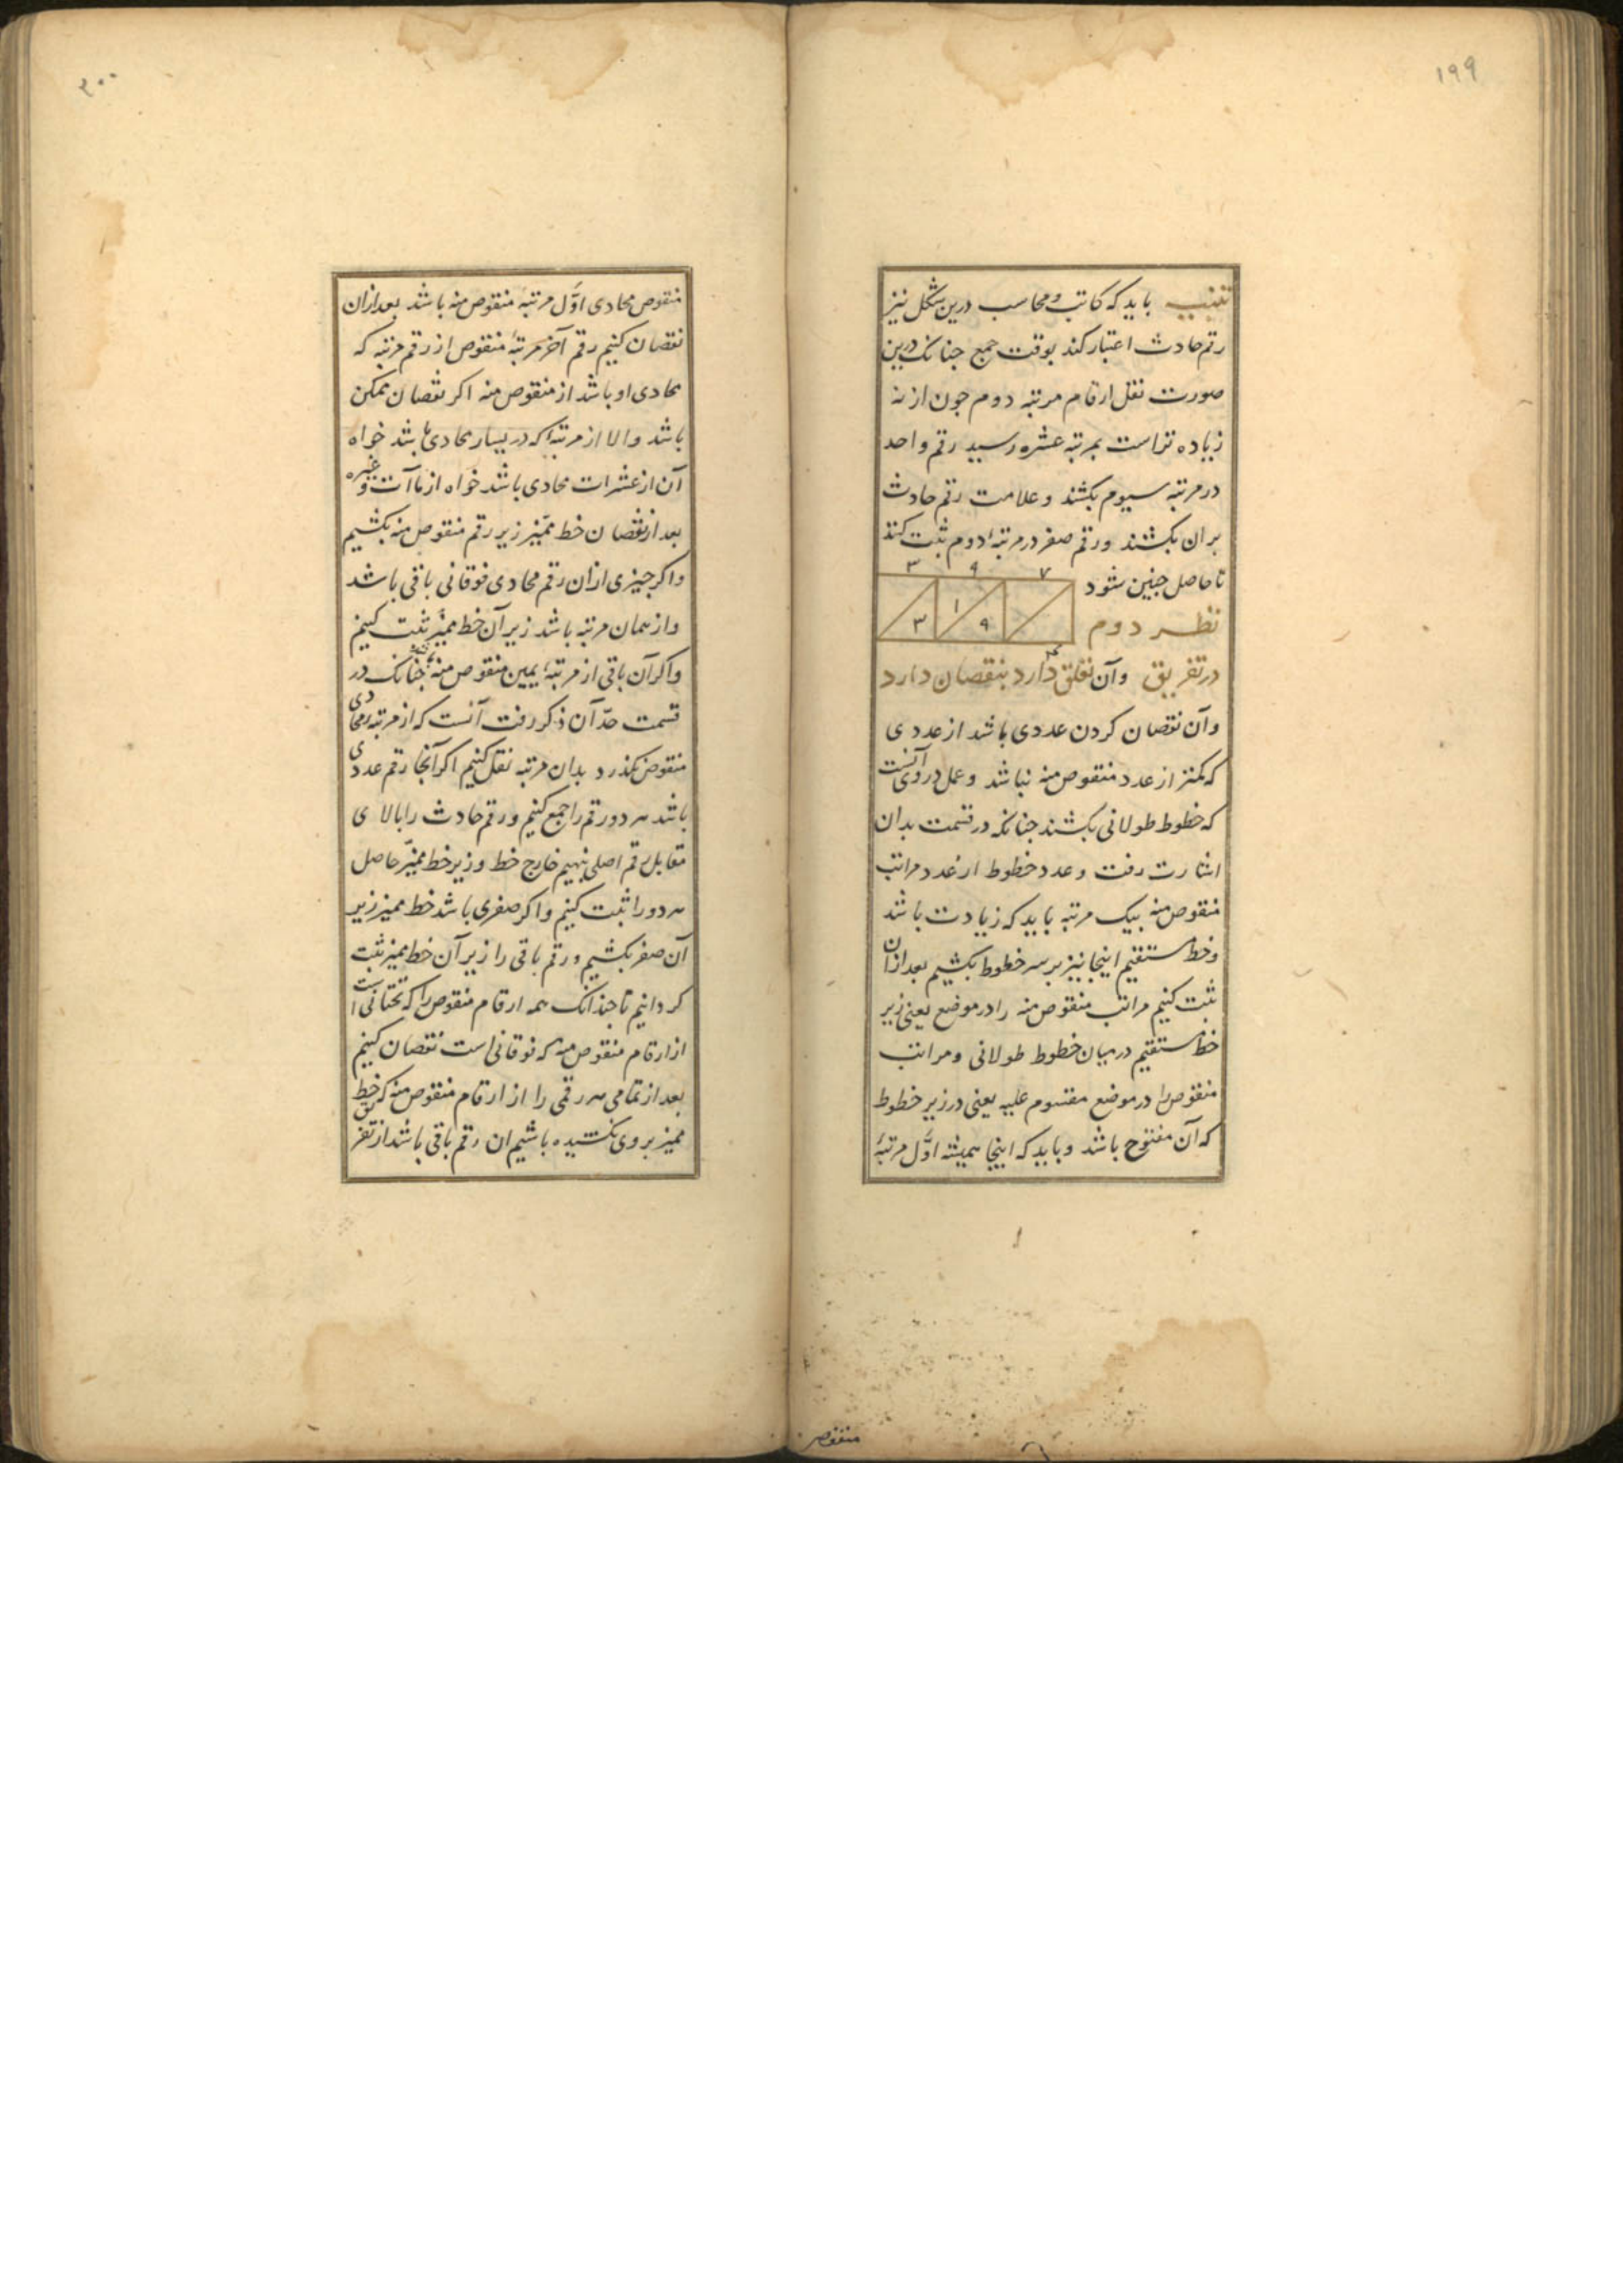 ۱۹۹
تنبیه باید که کاتب و محاسب درین شکل نیز
رقم حادث اعتبار کند بوقت جمع جنانک درین
صورت نقل ارقام مرتبه دوم جون از نه
زیاده تراست بمرتبه عشره رسید رقم واحد
در مرتبه سیوم بکشند و علامت رقم حادث
بران بکشند ورقم صفر در مرتبهٔ دوم ثبت کند
تا حاصل جنین شود
۳ ۹ ۷
۳ ۱ ۹
نظر دوم
در تفریق وآن تعلق دارد بنقصان دارد
وآن نقصان کردن عددی باشد از عددی
که کمتر از عدد منقوص منه نباشد وعمل در وی آنست
که خطوط طولانی بکشند جنانکه در قسمت بدان
اشارت رفت وعدد خطوط از عدد مراتب
منقوص منه بیک مرتبه باید که زیادت باشد
وخط مستقیم اینجا نیز بر سر خطوط بکشیم بعد ازان
ثبت کنیم مراتب منقوص منه را در موضع یعنی زیر
خط مستقیم در میان خطوط طولانی ومراتب
منقوص را در موضع مقسوم علیه یعنی در زیر خطوط
که آن مفتوح باشد وباید که اینجا همیشه اوّل مرتبهٔ
منقوص
۲۰۰
منقوص محادی اوّل مرتبهٔ منقوص منه باشد بعد ازان
نقصان کنیم رقم آخر مرتبهٔ منقوص از رقم مرتبه که
محادی او باشد از منقوص منه اکر نقصان ممکن
باشد والا از مرتبهٔ که در یسار محادی باشد خواه
آن از عشرات محادی باشد خواه از مآآت وغیره
بعد از نقصان خط ممیّز زیر رقم منقوص منه بکشیم
واکر جیزی ازان رقم محادی فوقانی باقی باشد
واز همان مرتبه باشد زیر آن خط ممیّز ثبت کنیم
واکر آن باقی از مرتبهٔ یمین منقوص منه جنانک در
قسمت حدّ آن ذکر رفت آنست که از مرتبهٔ محادی
منقوص بکذرد بدان مرتبه نقل کنیم اکر آنجا رقم عددی
باشد هر دو رقم را جمع کنیم ورقم حادث را بالای
مقابل رقم اصلی بنهیم خارج خط وزیر خط ممیّز حاصل
هر دو را ثبت کنیم واکر صفری باشد خط ممیز زیر
آن صفر بکشیم ورقم باقی را زیر آن خط ممیز ثبت
کردانیم تا جندانک همه ارقام منقوص را که تحتانی است
از ارقام منقوص منه که فوقانی است نقصان کنیم
بعد از تمامی هر رقمی را از ارقام منقوص منه که خط
ممیز بر وی نکشیده باشیم ان رقم باقی باشد از تفریق